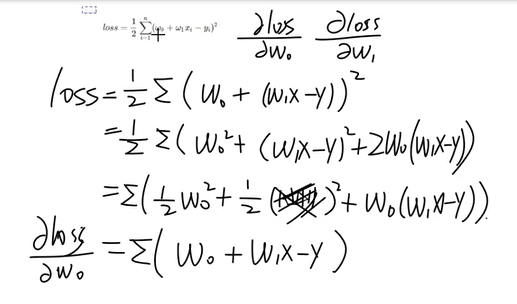 loss = \frac{1}{2} \sum_{i=1}^{n} (ω_0 + ω_1 x_i − y_i)^2    \frac{∂loss}{∂w_0}  \frac{∂loss}{∂w_1}
loss = \frac{1}{2} Σ ( w_0 + (w_1x−y) )^2
= \frac{1}{2} Σ ( w_0^2 + (w_1x−y)^2 + 2w_0(w_1x−y) )
= Σ ( \frac{1}{2} w_0^2 + \frac{1}{2} ( )^2 + w_0(w_1x−y) )
\frac{∂loss}{∂w_0} = Σ ( w_0 + w_1x−y )